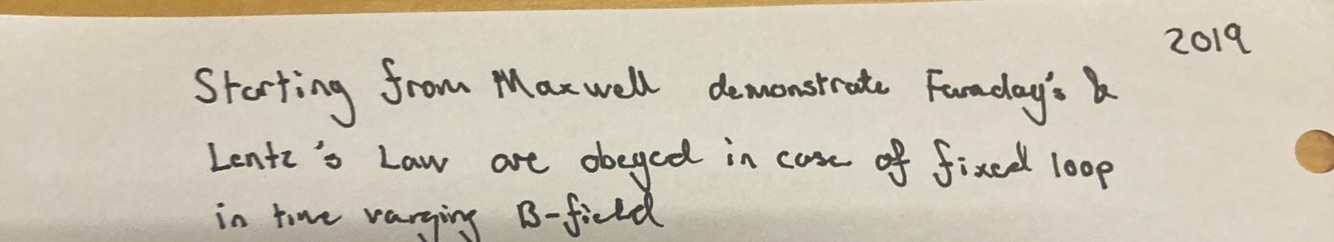 2019
Starting from Maxwell demonstrate Faraday's &
Lentz's Law are obeyed in case of fixed loop
in time varying B-field